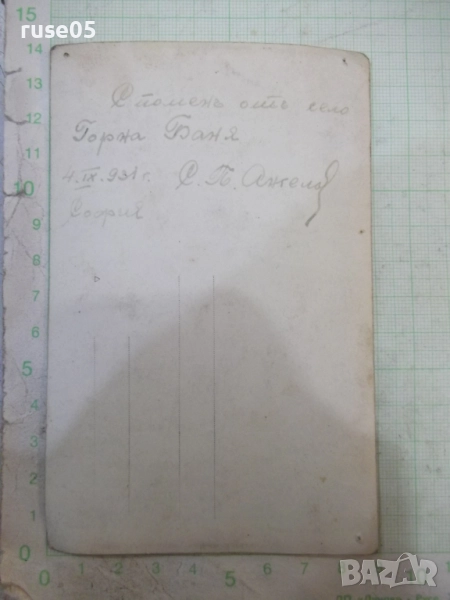 ruse05
15
14
13
12
11
10
9
8
7
6
5
4
3
2
1
0
Споменъ отъ село
Горна Баня
4.IX.931 г. С. П. Ангелов
София
0 5
BAZAR.bg